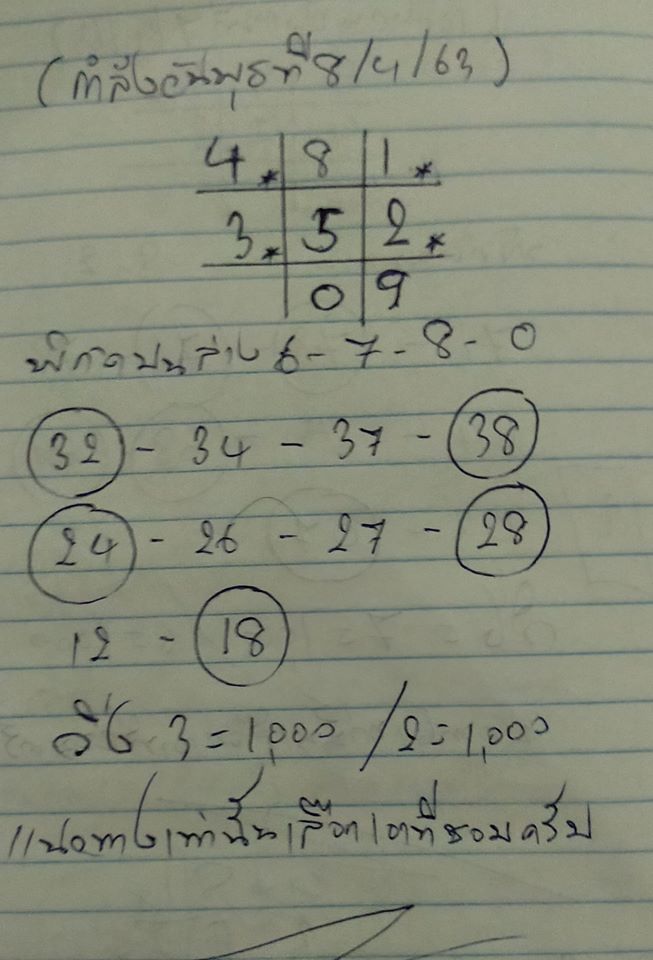 (กำลังวันพุธที่ 8/4/63)
4.* 8 1.*
3.* 5 2.*
0 9
พิกัดบนล่าง 6 - 7 - 8 - 0
32 - 34 - 37 - 38
24 - 26 - 27 - 28
12 - 18
วิ่ง 3 = 1,000 / 2 = 1,000
แนวทางเท่านั้นเลือกเอาที่ชอบครับ